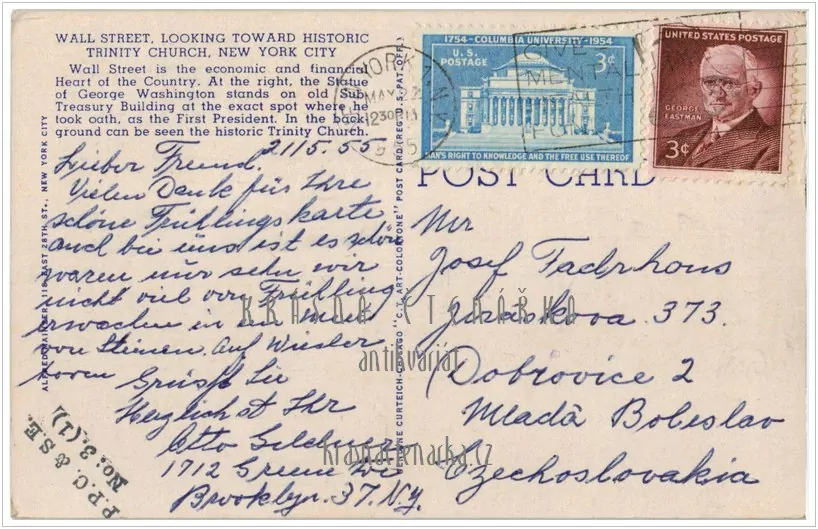 WALL STREET, LOOKING TOWARD HISTORIC
TRINITY CHURCH, NEW YORK CITY
Wall Street is the economic and financial
Heart of the Country. At the right, the Statue
of George Washington stands on old Sub
Treasury Building at the exact spot where he
took oath, as the First President. In the back
ground can be seen the historic Trinity Church.
21 5. 55
Lieber Freund
Vielen Dank für Ihre
schöne Frühlingskarte
auch bei uns ist es schön
waren nur sehn wir
nicht viel von Frühling
erwachen in ein Meer
von Steinen. Auf Wieder
hören Grüsst Sie
Herzlichst Ihr
Otto
1712 Greene
Brooklyn. 37. N.Y.
P.P.C. & S.E.
No: 3.(1)
EAST 28TH ST., NEW YORK CITY
CURTEICH-CHICAGO "C.T. ART-COLORTONE" POST CARD (REG. U.S. PAT. OFF.)
1754-COLUMBIA UNIVERSITY-1954
U.S.
POSTAGE
3¢
MAN'S RIGHT TO KNOWLEDGE AND THE FREE USE THEREOF
UNITED STATES POSTAGE
GEORGE
EASTMAN
3¢
YORK, N.Y.
MAY 22
GIVE
MENTAL
POST CARD
Mr
Josef
373.
Dobrovice 2
Mladá Boleslav
Czechoslovakia
KRÁSNÁ ČTENÁŘKA
antikvariát
krasnactenarka.cz